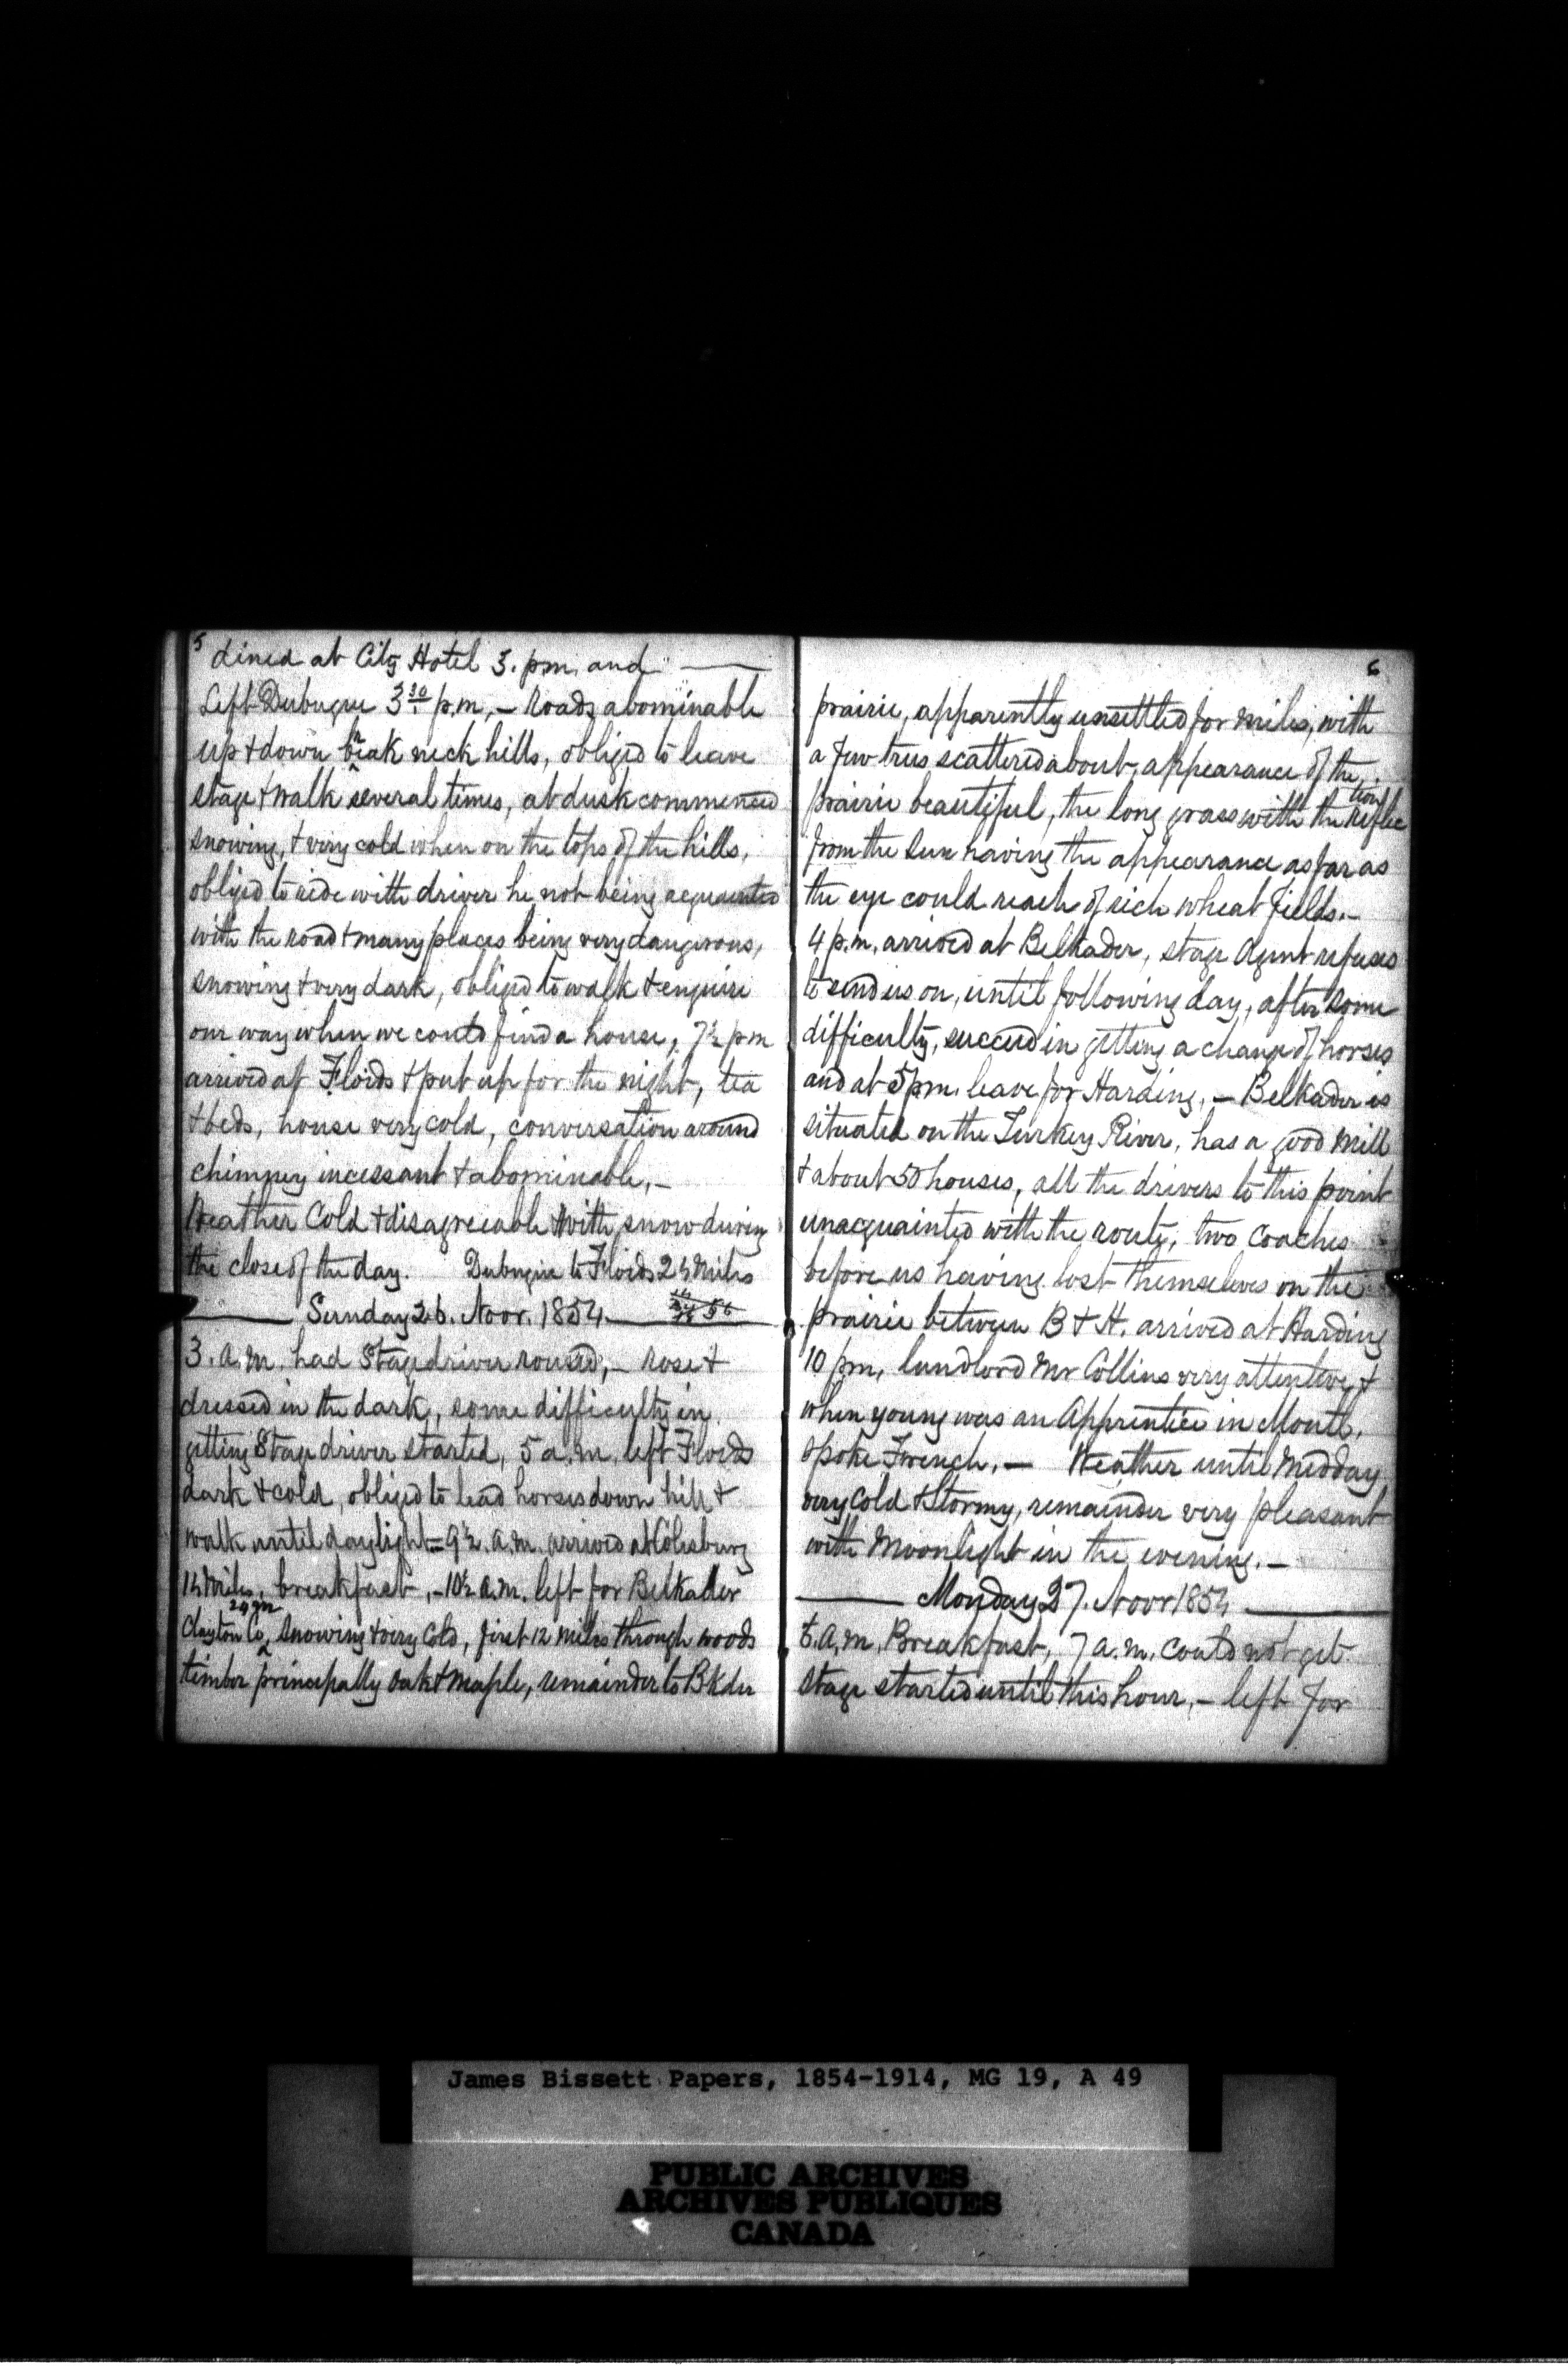 5
dined at City Hotel 3. pm. and
Left Dubuque 3 30 p.m. – Roads abominable
up & down break neck hills, obliged to leave
stage & walk several times, at dusk commenced
snowing, & very cold when on the tops of the hills,
obliged to ride with driver he not being acquainted
with the road & many places being very dangerous,
snowing & very dark, obliged to walk & enquire
our way when we could find a house, 7½ pm
arrived at Floids & put up for the night, tea
& beds, house very cold, conversation around
chimney incessant & abominable, –
Weather Cold & disagreeable with snow during
the close of the day. Dubuque to Floids Miles
Sunday 26. Novr. 1854
3. a.m. had Stage driver roused, – rose &
dressed in the dark, some difficulty in
getting Stage driver started, 5 a.m. left Floids
dark & cold, obliged to lead horses down hill &
walk until daylight = 9½ a.m. arrived at Colesburg
Miles, breakfast, – 10½ a.m. left for Belkader
Clayton Co, snowing & very cold, first 12 miles through woods
timber principally oak & maple, remainder to Bkder
6
prairie, apparently unsettled for miles, with
a few trees scattered about, appearance of the
prairie beautiful, the long grass with the reflection
from the sun having the appearance as far as
the eye could reach of rich wheat fields. –
4 p.m. arrived at Belkader, stage Agent refuses
to send us on, until following day, after some
difficulty, succeed in getting a change of horses
and at 5 pm. leave for Harding, – Belkader is
situated on the Turkey River, has a good Mill
& about 50 houses, all the drivers to this point
unacquainted with the route, two Coaches
before us having lost themselves on the
prairie between B & H. arrived at Harding
10 pm, landlord Mr Collins very attentive, &
when young was an Apprentice in Montl.
spoke French. – Weather until Midday
very cold & Stormy, remainder very pleasant
with Moonlight in the evening. –
Monday 27. Novr 1854
a.m. Breakfast, 7 a.m. could not get
stage started until this hour, – left for
James Bissett Papers, 1854-1914, MG 19, A 49
PUBLIC ARCHIVES
ARCHIVES PUBLIQUES
CANADA